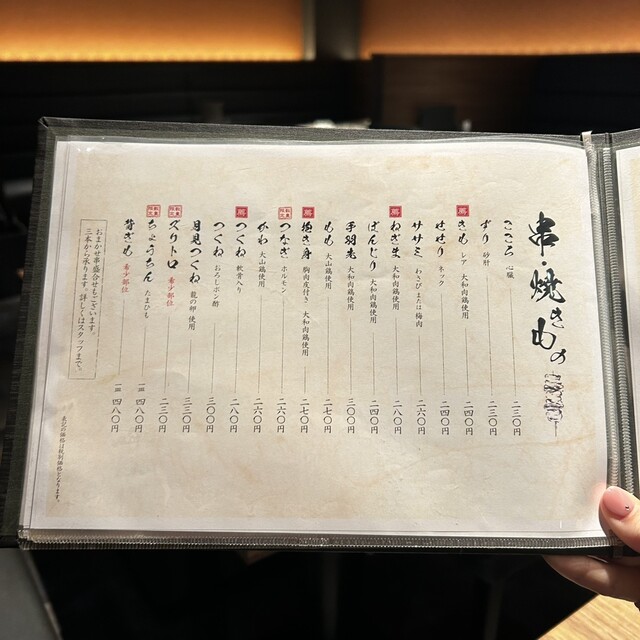 串焼きもの
こころ 心臓 二三〇円
ずり 砂肝 二三〇円
萬 きも レア 大和肉鶏使用 二四〇円
せせり ネック 二四〇円
ササミ わさびまたは梅肉 二六〇円
萬 ねぎま 大和肉鶏使用 二八〇円
ぼんじり 大和肉鶏使用 二四〇円
手羽先 大和肉鶏使用 三〇〇円
もも 大山鶏使用 二七〇円
萬 抱き身 胸肉皮付き 大和肉鶏使用 二七〇円
つなぎ ホルモン 二六〇円
かわ 大山鶏使用 二六〇円
つくね 軟骨入り 二八〇円
つくね おろしポン酢 三〇〇円
月見つくね 龍の卵 使用 三三〇円
数量限定 ズリトロ 希少部位 二三〇円
数量限定 ちょうちん たまひも 一皿 四八〇円
背ぎも 希少部位 一皿 四八〇円
おまかせ串盛合せもございます。
三本から承ります。詳しくはスタッフまで。
表記の価格は税別価格となります。